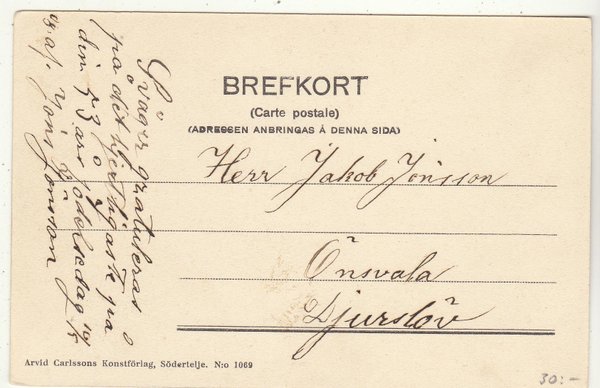 BREFKORT
(Carte postale)
(ADRESSEN ANBRINGAS Å DENNA SIDA)
Herr Jakob Jönsson
Önsvala
Djurslöv
Svåger gratuleras
på det hjertligaste på
din 73 års födelsedag
af Jöns Jönsson
Arvid Carlssons Konstförlag, Södertelje. N:o 1069
30:-